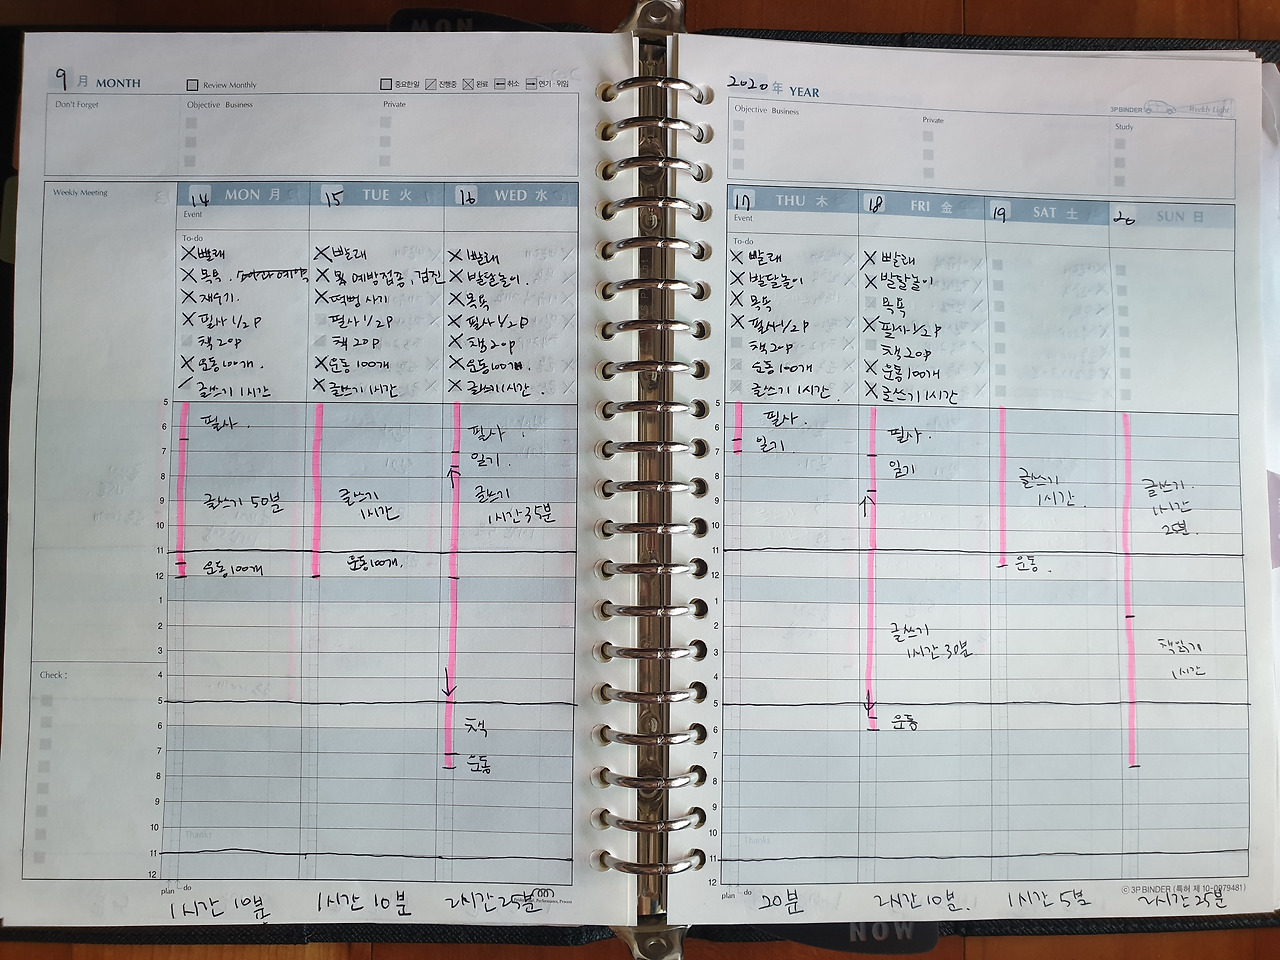 MON
9 月 MONTH
Review Monthly
중요한일 진행중 완료 취소 연기 · 위임
Don't Forget
Objective Business
Private
Weekly Meeting
14 MON 月
15 TUE 火
16 WED 水
Event
To-do
빨래
목욕.
재우기.
필사 1/2p
책 20p
운동100개.
글쓰기 1시간
빨래
예방접종, 검진
떡뻥 사기
필사 1/2p
책 20p
운동 100개
글쓰기 1시간
빨래
발달놀이.
목욕
필사 1/2p
책 20p
운동100개.
글쓰기 1시간.
5
6
7
8
9
10
11
12
1
2
3
4
5
6
7
8
9
10
11
12
필사.
글쓰기 50분
운동100개
글쓰기
1시간
운동100개.
필사.
일기.
글쓰기
1시간35분
책
운동
Check :
Thanks
plan do
1시간 10분
1시간 10분
2시간25분
2020 年 YEAR
3P BINDER Weekly Light
Objective Business
Private
Study
17 THU 木
18 FRI 金
19 SAT 土
20 SUN 日
Event
To-do
빨래
발달놀이
목욕
필사1/2p
책20p
운동100개
글쓰기 1시간.
빨래
발달놀이
목욕
필사 1/2p
책20p
운동100개
글쓰기 1시간
5
6
7
8
9
10
11
12
1
2
3
4
5
6
7
8
9
10
11
12
필사.
일기.
필사.
일기
글쓰기
1시간 30분
운동
글쓰기
1시간.
운동.
글쓰기.
1시간
25분.
책읽기
1시간
Thanks
plan do
ⓒ 3P BINDER (특허 제 10-0979481)
20분
2시간10분.
1시간 5분
2시간 25분
NOW